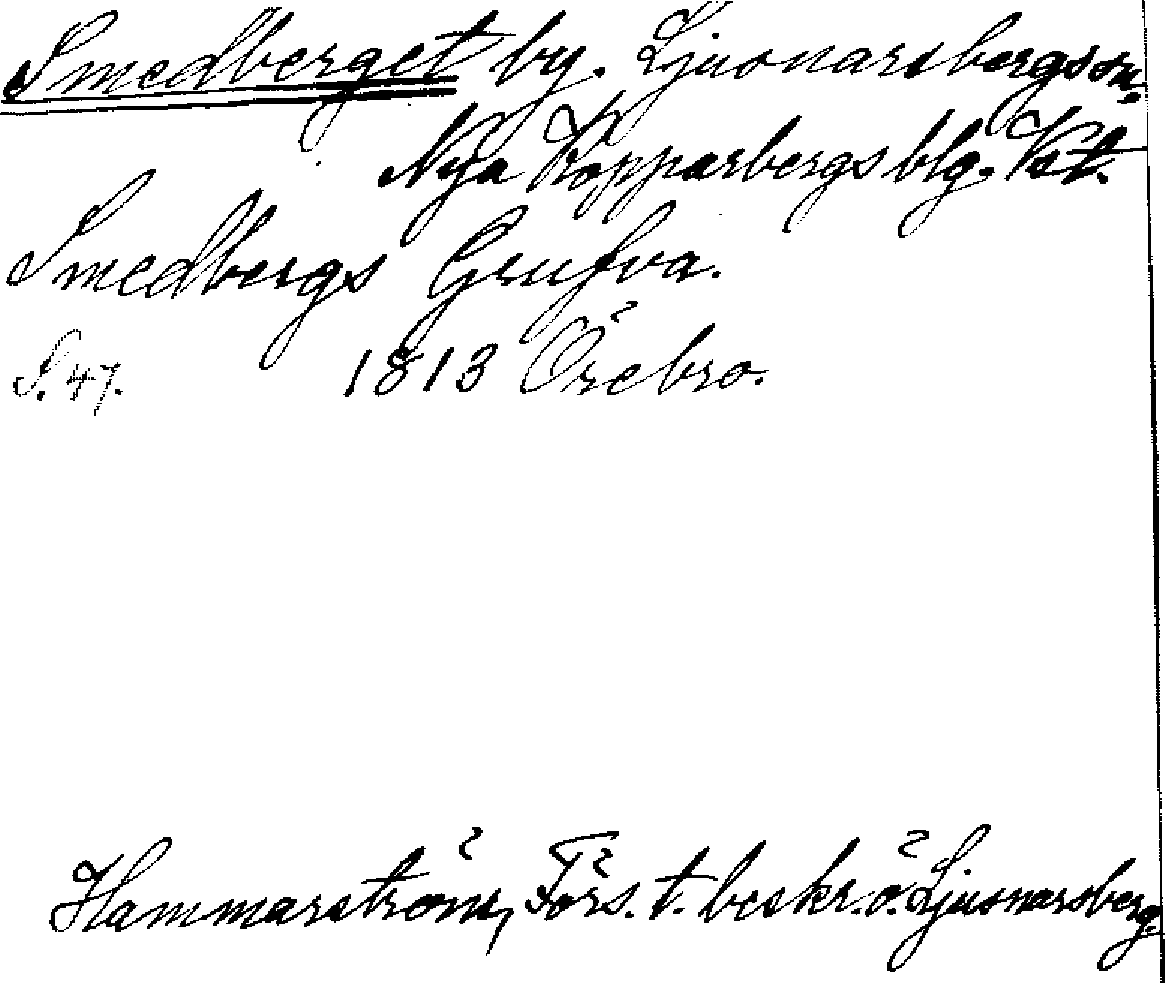 Smedberget by. Ljusnarsbergs sn.
Nya Kopparbergs blg. Vst.
Smedbergs Grufva.
S. 47. 1813 Örebro.
Hammarström, Förs. t. beskr. ö. Ljusnarsberg.